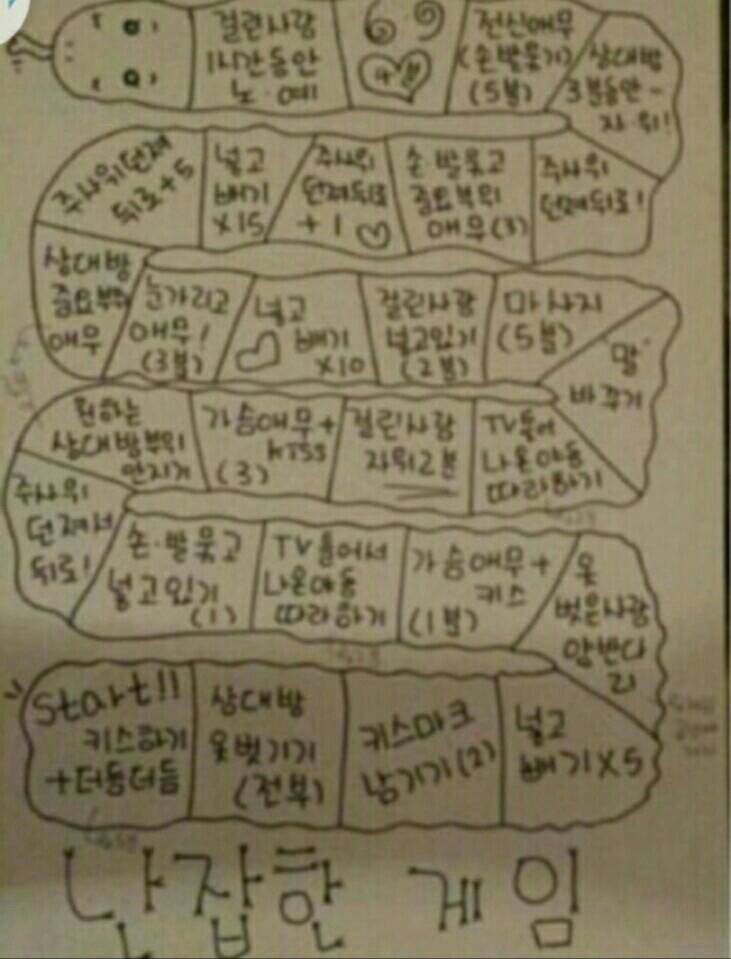 걸린사람
1시간동안
노·예
69
전신애무
(손발묶기)
(5분)
상대방
3분동안
자·위!
주사위던져
뒤로+5
넣고
빼기
x15
주사위
던져뒤로
+1♡
손·발묶고
중요부위
애무(3)
주사위
던져뒤로!
상대방
중요부위
애무
눈가리고
애무!
(3분)
넣고
♡ 빼기
x10
걸린사람
넣고있기
(2분)
마사지
(5분)
"말"
바꾸기
원하는
상대방부위
만지기
가슴애무+
kiss
(3)
걸린사람
자위2분
TV틀어
나온야동
따라하기
주사위
던져서
뒤로!
손·발묶고
넣고있기
(1)
TV틀어서
나온야동
따라하기
가슴애무+
키스
(1분)
옷
벗은사람
start!!
키스하기
+더듬더듬
상대방
옷벗기기
(전부)
키스마크
남기기(2)
넣고
빼기x5
난잡한 게임